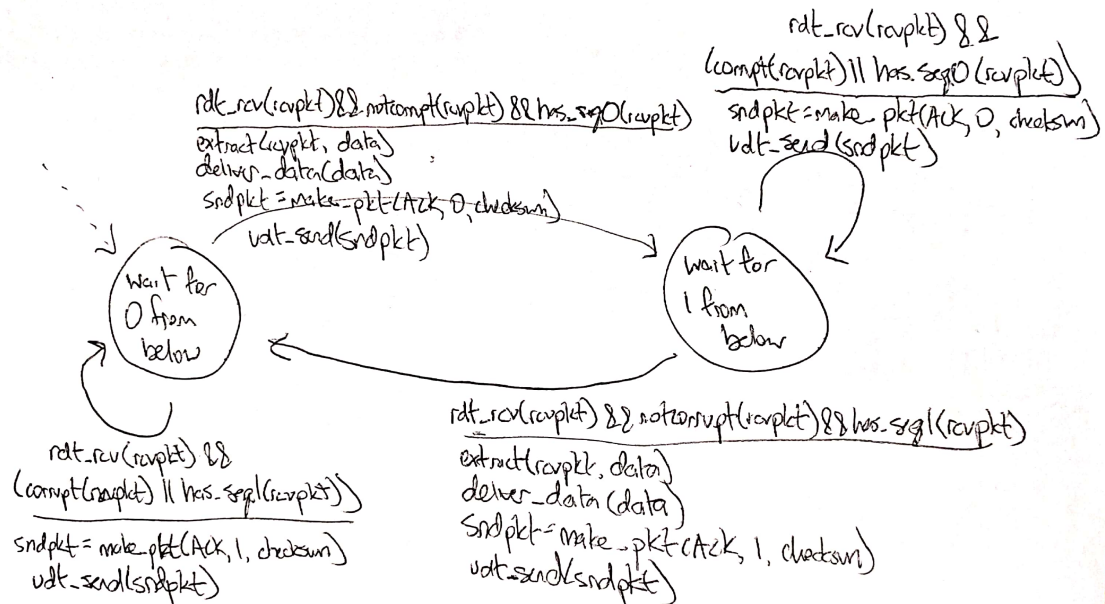 rdt_rcv(rcvpkt) &&
(corrupt(rcvpkt) || has_seq0(rcvpkt))
sndpkt=make_pkt(ACK, 0, checksum)
udt_send(sndpkt)
rdt_rcv(rcvpkt) && notcorrupt(rcvpkt) && has_seq0(rcvpkt)
extract(rcvpkt, data)
deliver_data(data)
sndpkt = make_pkt(ACK, 0, checksum)
udt_send(sndpkt)
wait for
0 from
below
wait for
1 from
below
rdt_rcv(rcvpkt) &&
(corrupt(rcvpkt) || has_seq1(rcvpkt))
sndpkt = make_pkt(ACK, 1, checksum)
udt_send(sndpkt)
rdt_rcv(rcvpkt) && notcorrupt(rcvpkt) && has_seq1(rcvpkt)
extract(rcvpkt, data)
deliver_data(data)
sndpkt = make_pkt(ACK, 1, checksum)
udt_send(sndpkt)